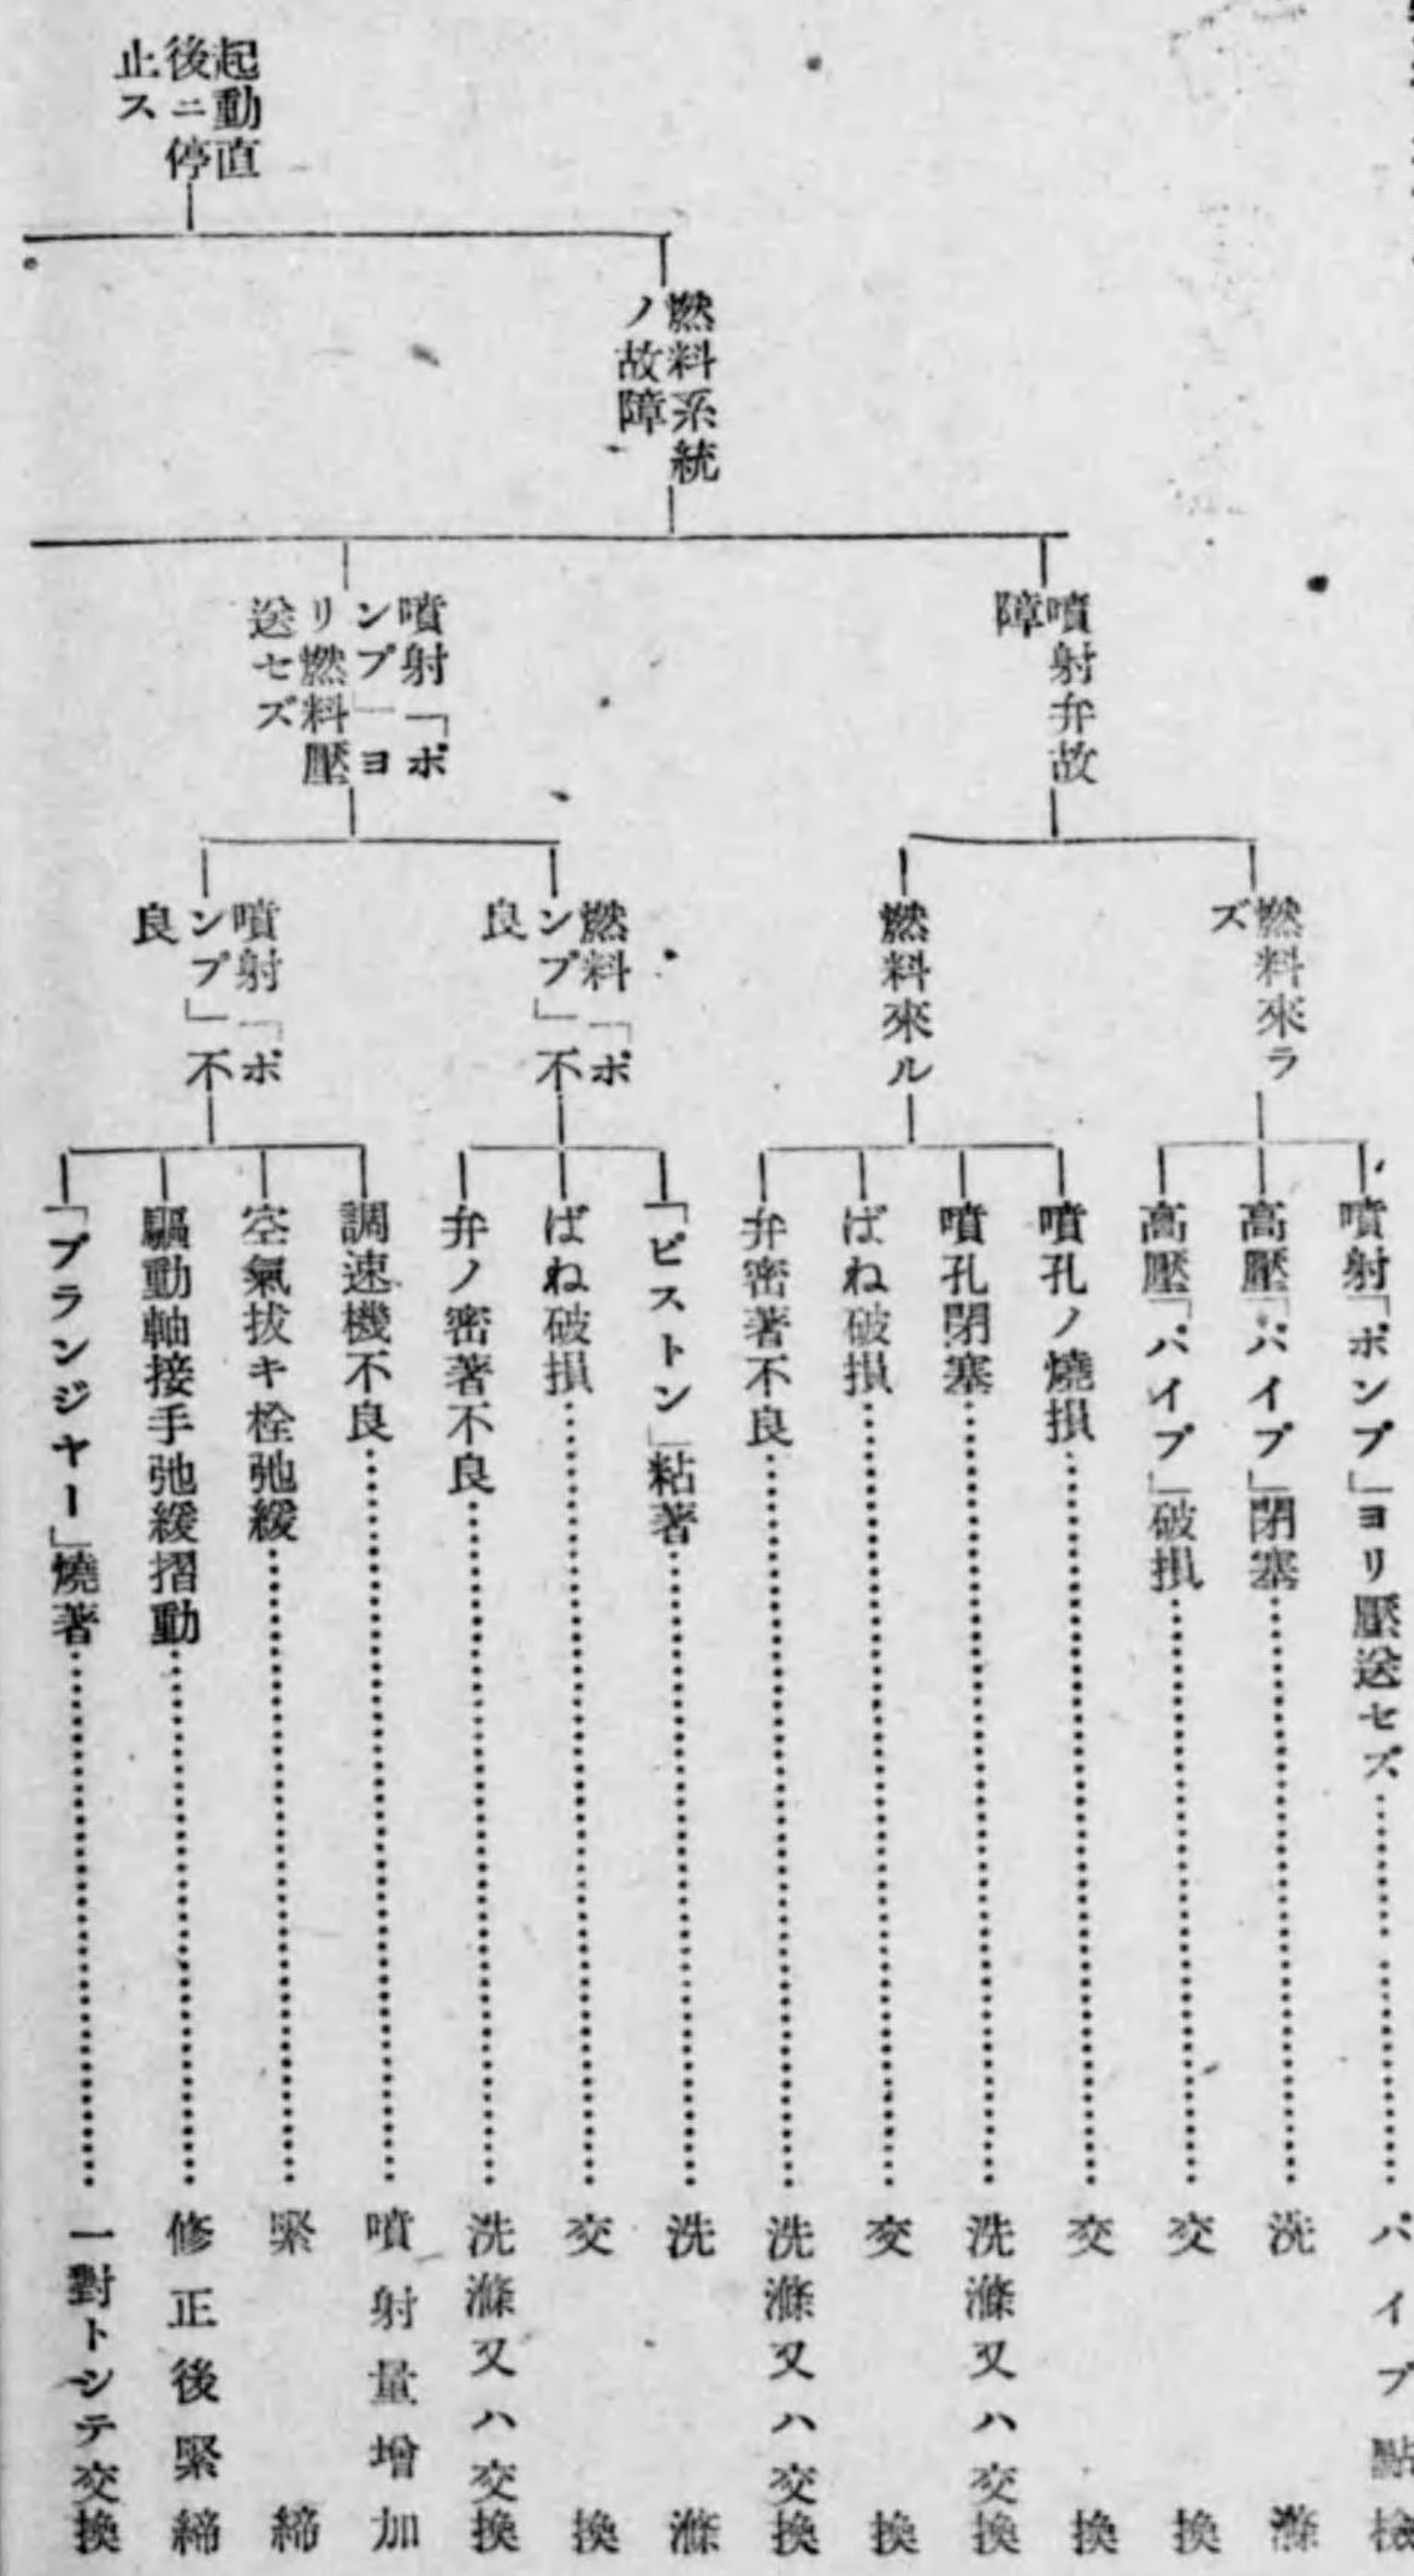 起動直
後ニ停
止ス
燃料系統
ノ故障
噴射弁故
障
燃料來ラ
ズ
噴射「ポンプ」ヨリ壓送セズ……パイプ點検
高壓「パイプ」閉塞……洗滌
高壓「パイプ」破損……交換
燃料來ル
噴孔ノ燒損……交換
噴孔閉塞……洗滌又ハ交換
ばね破損……交換
弁密著不良……洗滌又ハ交換
噴射「ポ
ンプ」ヨ
リ燃料壓
送セズ
燃料「ポ
ンプ」不
良
「ピストン」粘著……洗滌
ばね破損……交換
弁ノ密著不良……洗滌又ハ交換
噴射「ポ
ンプ」不
良
調速機不良……噴射量增加
空氣拔キ栓弛緩……緊締
驅動軸接手弛緩摺動……修正後緊締
「プランジヤー」燒著……一對トシテ交換